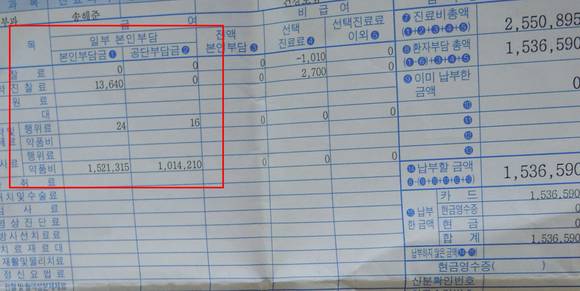 과 목 진 료
부과 송해준
급 여
비 급 여
목
일부 본인부담
본인부담금① 공단부담금②
전액
본인부담③
선택
진료료④
선택진료료
이외⑤
찰 료 0 0 0 -1,010 0
진찰료 13,640 0 0 2,700 0
원 료
대
행위료 24 16 0 0 0
약품비
행위료
사료 약품비 1,521,315 1,014,210 0 0 0
취 료
처치및수술료
검 사 료
영상진단료
방사선치료료
치료재료대
재활및물리치료
정신요법료
⑦진료비총액
(①+②+③+④+⑤) 2,550,895
⑧환자부담 총액
(①-⑥+③+④+⑤) 1,536,590
⑨이미 납부한
금액 0
⑩
⑪
⑫
⑬
⑭납부할 금액 1,536,590
⑮납부
한 금액
카 드 1,536,590
현금영수증 0
현 금 0
합 계 1,536,590
납부하지 않은 금액
현금영수증( )
신분확인번호